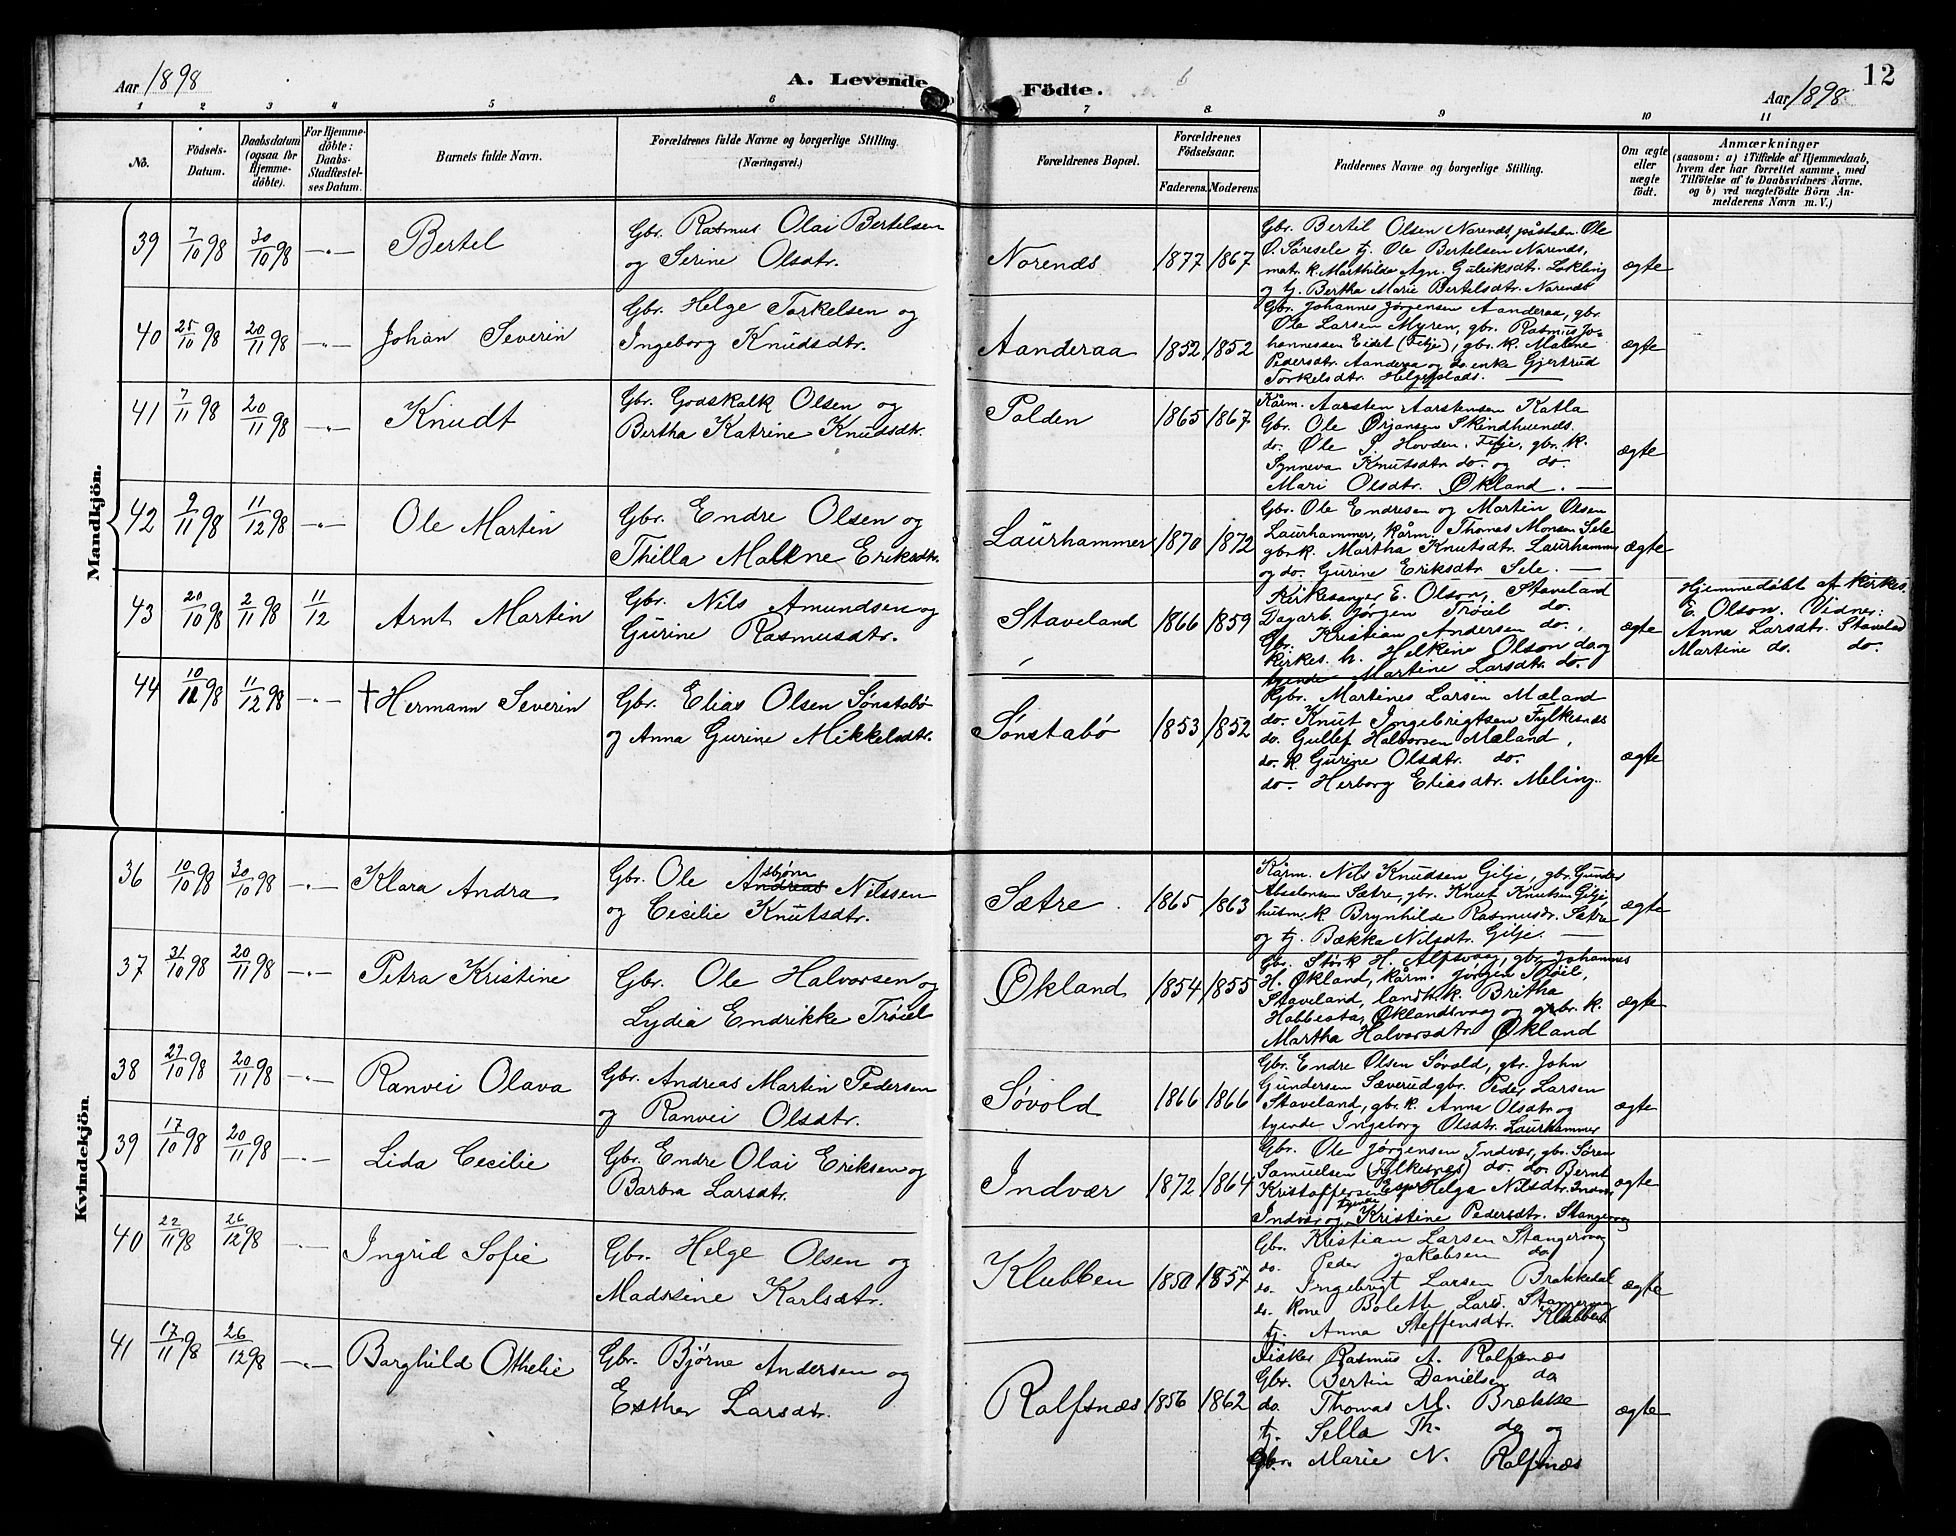 Aar 1898
A. Levende
1 2 3 4 5 6
No.
Födsels-
Datum.
Daabsdatum
(ogsaa for
Hjemme-
döbte).
For Hjemme-
döbte:
Daabs-
Stadfæstel-
ses Datum.
Barnets fulde Navn.
Forældrenes fulde Navne og borgerlige Stilling.
(Næringsvei.)
Mandkjön.
39 7/10 98 30/10 98 -"- Bertel
Gbr. Rasmus Olai Bertelsen
og Serine Olsdtr.
40 25/10 98 20/11 98 -"- Johan Severin
Gbr. Helge Torkelsen og
Ingeborg Knudsdtr.
41 7/11 98 20/11 98 -"- Knudt
Gbr. Godskalk Olsen og
Bertha Katrine Knudsdtr.
42 9/11 98 11/12 98 -"- Ole Martin
Gbr. Endre Olsen og
Thilla Malene Eriksdtr.
43 20/10 98 2/11 98 11/12 Arnt Martin
Gbr. Nils Amundsen og
Gurine Rasmusdtr.
44 10/11 98 11/12 98 -"- † Hermann Severin
Gbr. Elias Olsen Sønstabø
og Anna Gurine Mikkelsdtr.
Kvindekjön.
36 10/10 98 30/10 98 -"- Klara Andra
Gbr. Ole Asbjørn Andreas Nilssen
og Cecilie Knutsdtr.
37 31/10 98 20/11 98 -"- Petra Kristine
Gbr. Ole Halvorsen og
Lydia Endrikke Trøiel
38 27/10 98 20/11 98 -"- Ranvei Olava
Gbr. Andreas Martin Pedersen
og Ranvei Olsdtr.
39 17/10 98 20/11 98 -"- Lida Cecilie
Gbr. Endre Olai Eriksen og
Barbra Larsdtr.
40 22/11 98 26/12 98 -"- Ingrid Sofie
Gbr. Helge Olsen og
Madssine Karlsdtr.
41 17/11 98 26/12 98 -"- Borghild Othelie
Gbr. Bjørne Andersen og
Esther Larsdtr.
Födte.
Aar 1898
12
7 8 9 10 11
Forældrenes Bopæl.
Forældrenes
Födselsaar.
Faderens. Moderens.
Faddernes Navne og borgerlige Stilling.
Om ægte
eller
uægte
födt.
Anmærkninger
(saasom: a) i Tilfælde af Hjemmedaab,
hvem der har forrettet samme, med
Tilföielse af to Daabsvidners Navne,
og b) ved uægtefödte Börn An-
melderens Navn m. V.)
Norends 1877 1867 ægte
Gbr. Bertil Olsen Norends, Ole
O. Søresele tj. Ole Bertelsen Norends,
mat. k. Marthilde Agn. Guleiksdtr. Løkling
og tj. Bertha Marie Bertelsdtr. Norends
Aanderaa 1852 1852 ægte
Gbr. Johannes Jørgensen Aanderaa, gbr.
Ole Larsen Myren, gbr. Rasmus Jo-
hannessen Eidet (Fitje), gbr. k. Malene
Pedersdtr. Aanderaa og do. enke Gjertrud
Torkelsdtr. Helgeplads.
Polden 1865 1867 ægte
Kårm. Aarsten Aarstensen Katla
Gbr. Ole Ørjansen Skindhuends,
do. Ole P. Hovden, Fitje, gbr. k.
Synneva Knutsdtr. do. og do.
Mari Olsdtr. Økland.
Laurhammer 1870 1872 ægte
Gbr. Ole Endresen og Martin Olsen
Laurhammer, kårm. Thomas Monsen Sele
gbr. k. Martha Knutsdtr. Laurhammer
og do. Gurine Eriksdtr. Sele.
Staveland 1866 1859 ægte
Kirkesanger E. Olson, Staveland
Dagarb. Jørgen Trøiel do.
Gbr. Kristian Andersen do.,
kirkes. h. Helkine Olson do. og
tjende Martine Larsdtr. do.
Hjemmedøbt af kirkes.
E. Olson. Vidner:
Anna Larsdtr. Staveland
Martine do. do.
Sønstabø 1853 1852 ægte
Gbr. Martines Larsen Mæland
do. Knut Ingebrigtsen Fylkesnes
do. Gullef Halvorsen Mæland,
do. k. Gurine Olsdtr. do.
do. Herborg Eliasdtr. Meling.
Sætre 1865 1863 ægte
Kårm. Nils Knudsen Gilje, gbr. Gunder
Absalonsen Sætre, gbr. Knut Knutsen Gilje,
husm. k. Brynhilde Rasmusdr. Sætre
og tj. Bækka Nilsdtr. Gilje.
Økland 1854 1855 ægte
Gbr. Størk H. Alfsvaag, gbr. Johannes
H. Økland, kårm. Jørgen Trøiel,
Staveland, landh. k. Britha
Habbestad, Øklandsvaag og gbr. k.
Martha Halvorsdtr. Økland
Søvold 1866 1866 ægte
Gbr. Endre Olsen Søvold, gbr. John
Gundersen Sæverud gbr. Peder Larsen
Staveland, gbr. k. Anna Olsdtr. og
tjende Ingeborg Olsdtr. Laurhammer
Indvær 1872 1864 ægte
Gbr. Ole Jørgensen Indvær, gbr. Søren
Samuelsen (Fylkesnes) do. do. Bernt
Kristoffersen Helga Nilsdtr.
Indvær og tjende Kristine Pedersdtr. Stangervag
Klubben 1850 1857 ægte
Gbr. Kristian Larsen Stangervag
do. Peder Jakobsen do
do. Ingebrigt Larsen Brakkedal
do. kone Bolette Larsd. Stangervag
tj. Anna Steffensdtr. Klubben
Rolfsnæs 1856 1862 ægte
Fisker Rasmus A. Rolfsnæs
Gbr. Bertin Danielsen do
do. Thomas M. Brække
tj. Sella Th. do og
Gbr. Marie N. Rolfsnæs